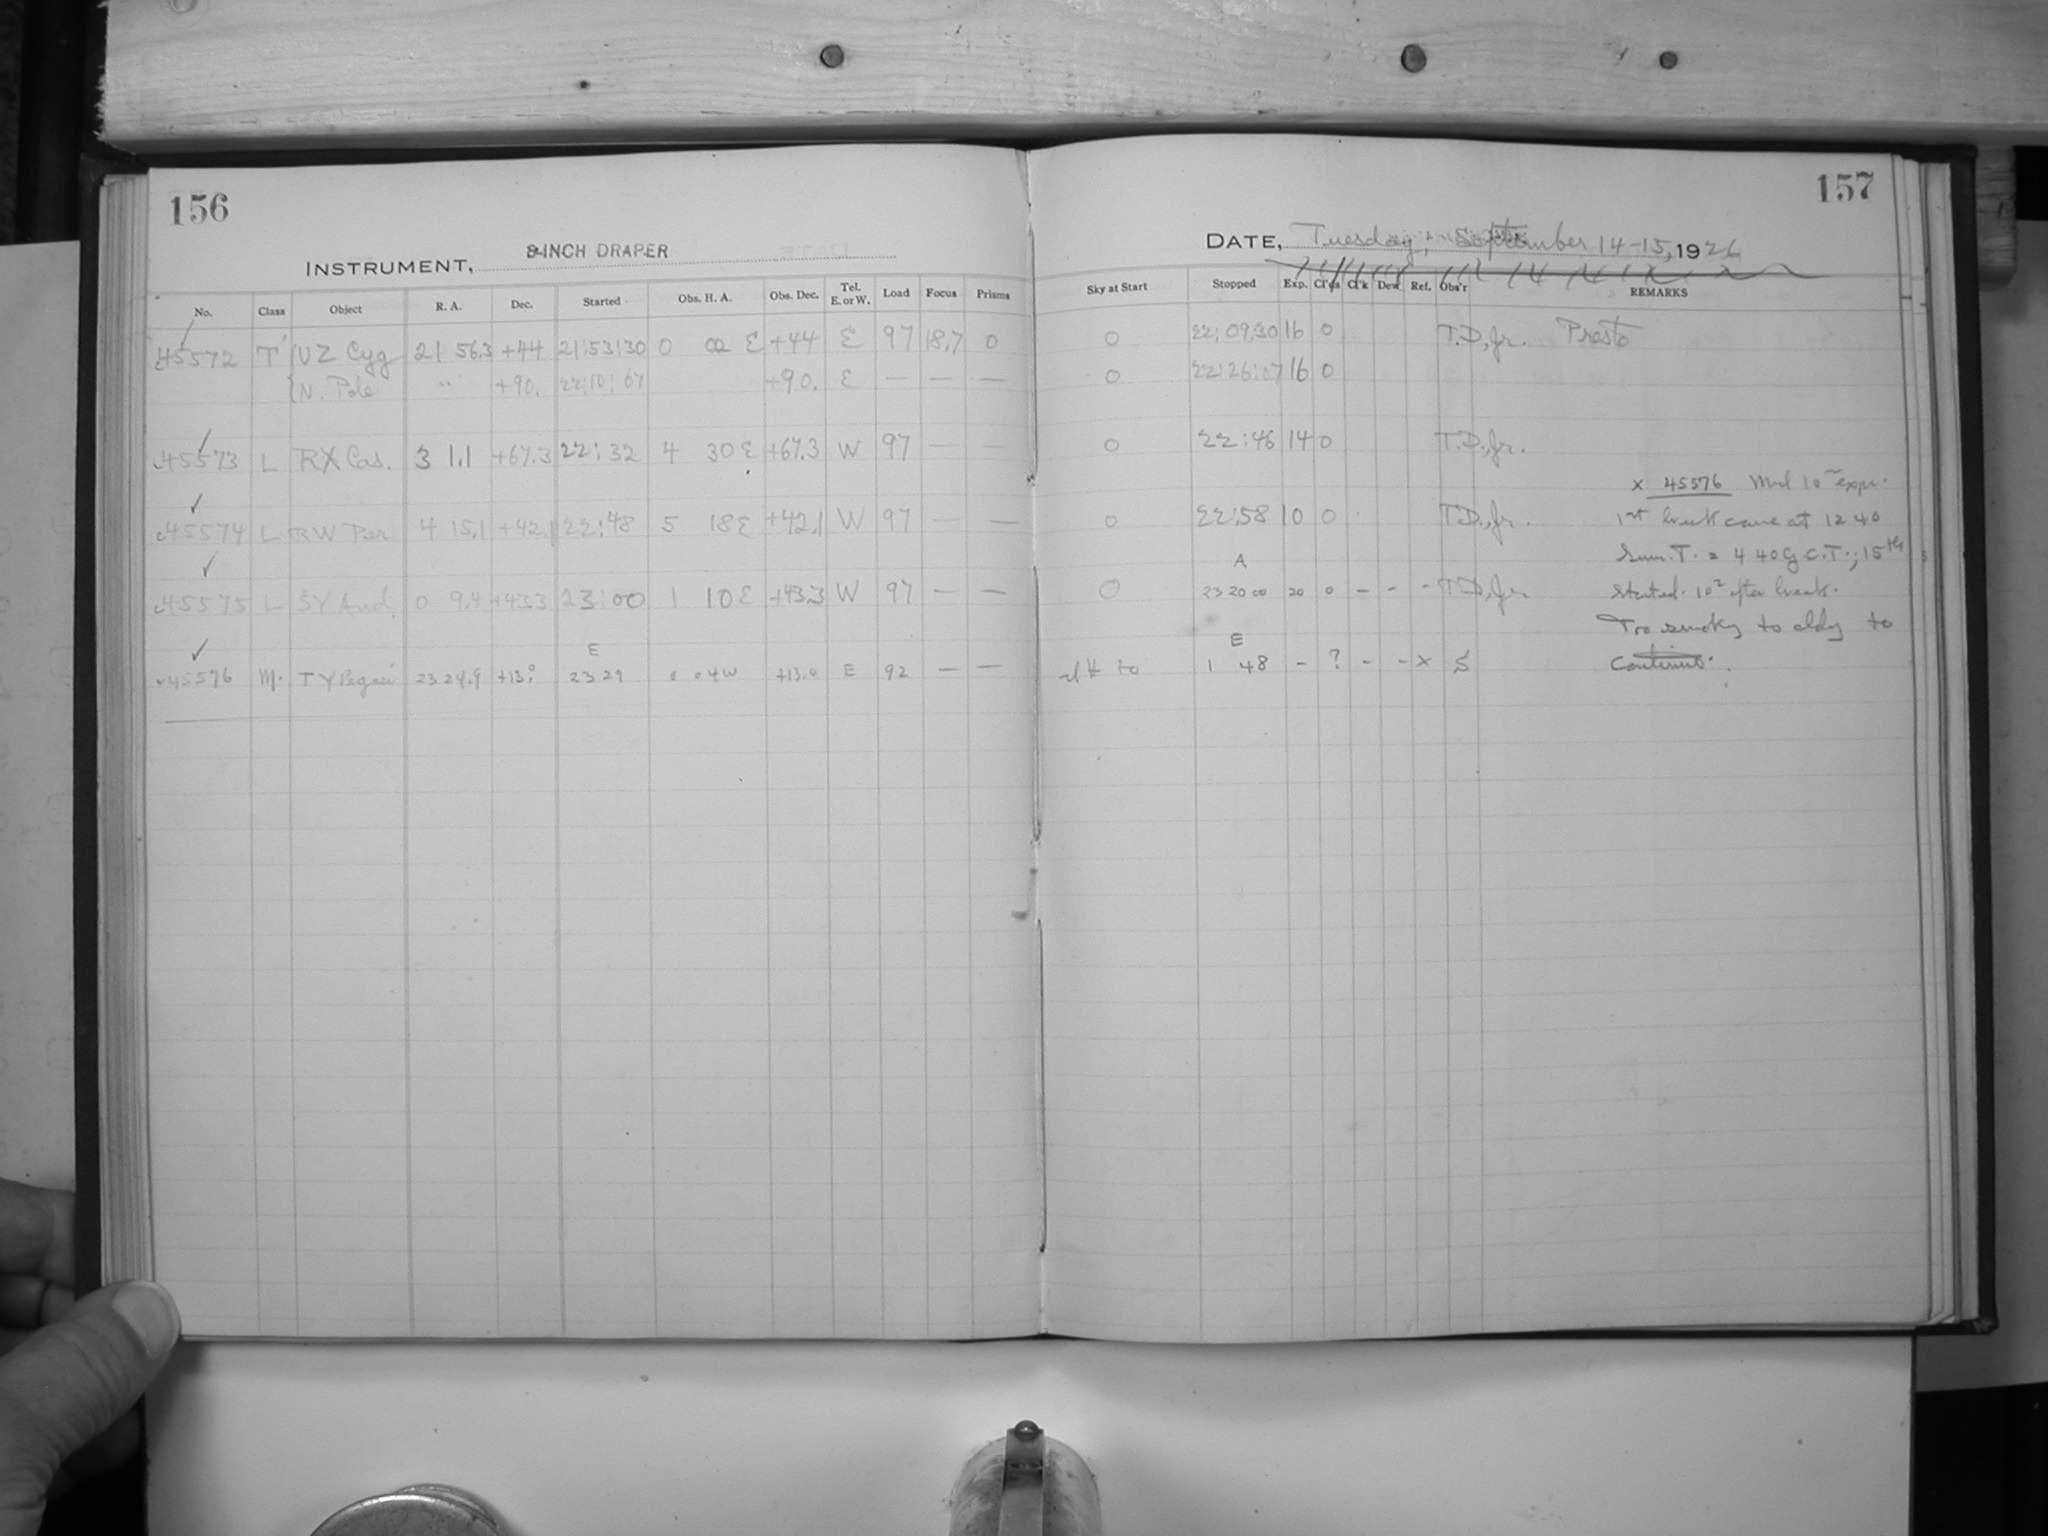 156
INSTRUMENT, 8-INCH DRAPER
No. Class Object R. A. Dec. Started Obs. H. A. Obs. Dec. Tel. E. or W. Load Focus Prisms
45572 T UZ Cyg 21 56.3 +44 21:53:30 0 02 E +44 E 97 18.7 0
N. Pole " +90. 22:10:07 +90. E — — —
45573 L RX Cas. 3 1.1 +67.3 22:32 4 30 E +67.3 W 97 — —
45574 L RW Per 4 15.1 +42.1 22:48 5 18 E +42.1 W 97 — —
45575 L SY And 0 9.4 +43.3 23:00 1 10 E +43.3 W 97 — —
E
45576 M. TY Pegasi 23 24.9 +13.0 23 29 0 04 W +13.0 E 92 — —
157
DATE, Tuesday, September 14-15, 1926
Sky at Start Stopped Exp. Cl'ds Cl'k Dew Ref. Obs'r REMARKS
0 22:09:30 16 0 T.D., Jr. Presto
0 22:26:07 16 0
0 22:46 14 0 T.D., Jr.
x 45576 Mul 10 expr.
0 22:58 10 0 T.D., Jr. 1st break came at 12 40
A Sum. T. = 4 40 G.C.T.; 15th
0 23 20 00 20 0 - - - T.D., Jr. started 10 after break.
Too smoky to cldy to
E
1 48 - ? - - x S continue.